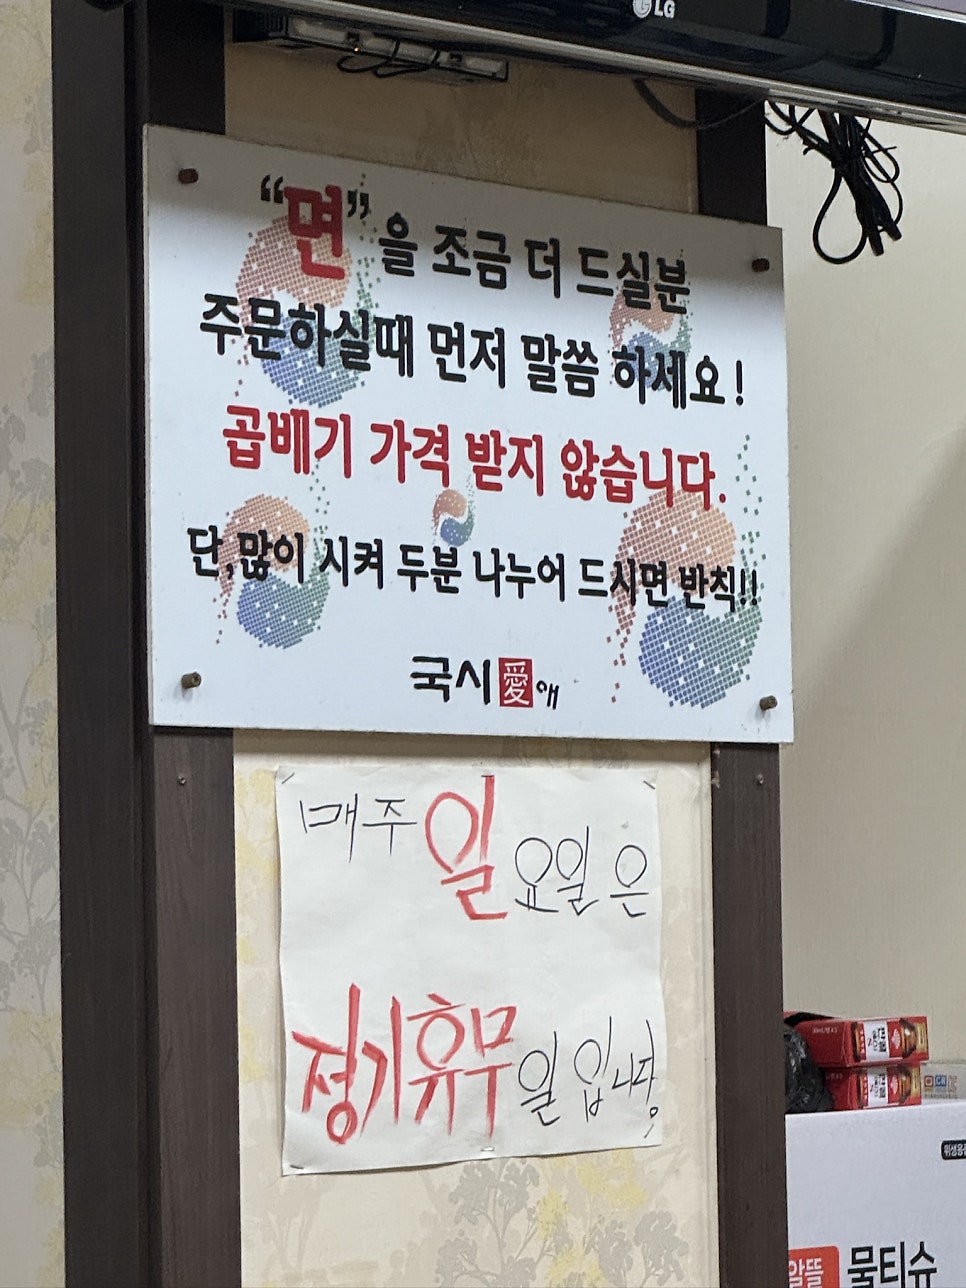 LG
“면”을 조금 더 드실분
주문하실때 먼저 말씀 하세요!
곱배기 가격 받지 않습니다.
단,많이 시켜 두분 나누어 드시면 반칙!!
국시愛애
매주 일요일은
정기휴무일 입니다.
알뜰 물티슈